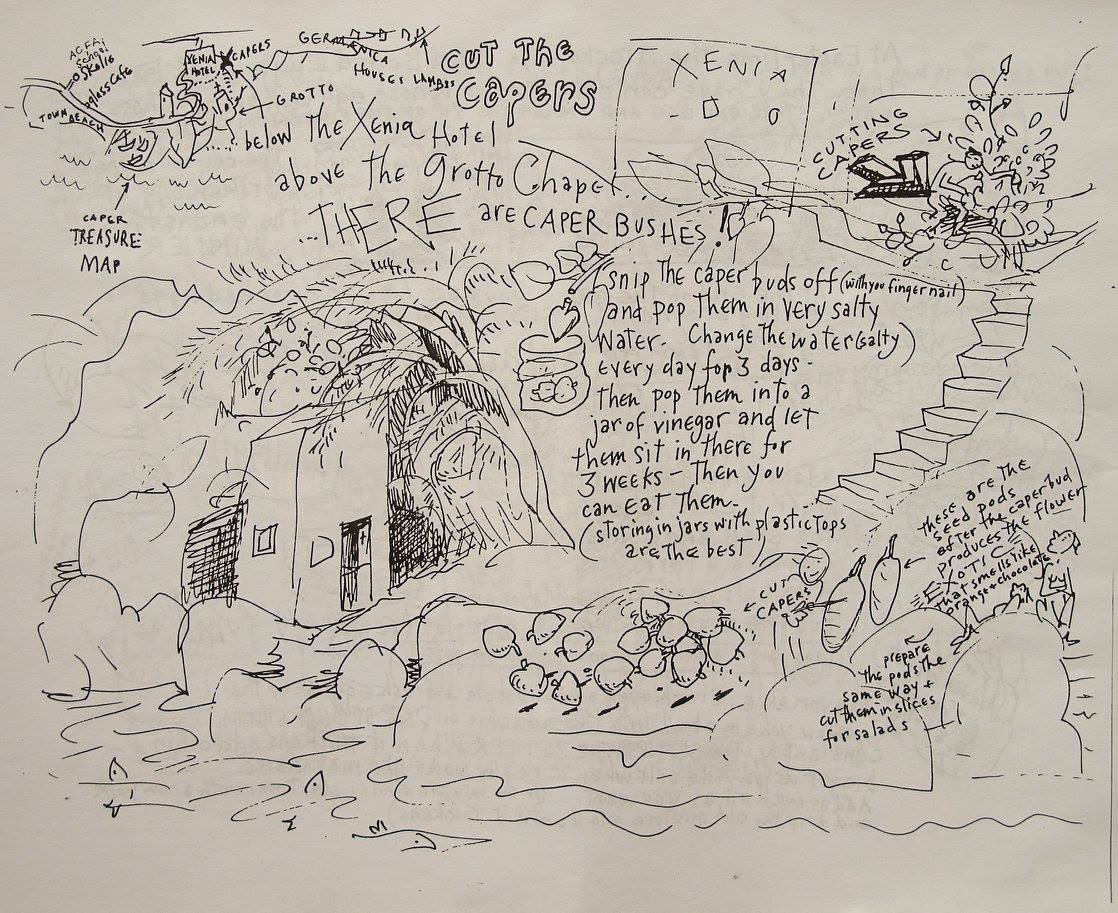 CUT THE
CAPERS
below The Xenia Hotel
above The grotto Chapel
...THERE are CAPER BUSHES!
AGFAi
School
Skolio
glass Cafe
TOWN BEACH
XENIA
HOTEL
CAPERS
GROTTO
GERMANICA
HOUSES LAMBIS
CAPER
TREASURE
MAP
XENIA
CUTTING
CAPERS
snip The caper buds off (with you finger nail)
and pop Them in very salty
water. Change The water (salty)
every day for 3 days -
then pop them into a
jar of vinegar and let
them sit in there for
3 weeks - Then you
can eat Them.
(storing in jars with plastic tops
are The best)
CUT
CAPERS
These are The
seed pods
after The caper bud
produces The flower
EXOTIC
that smells like
orange + chocolate
prepare
The pods The
same way +
cut Them in slices
for salads